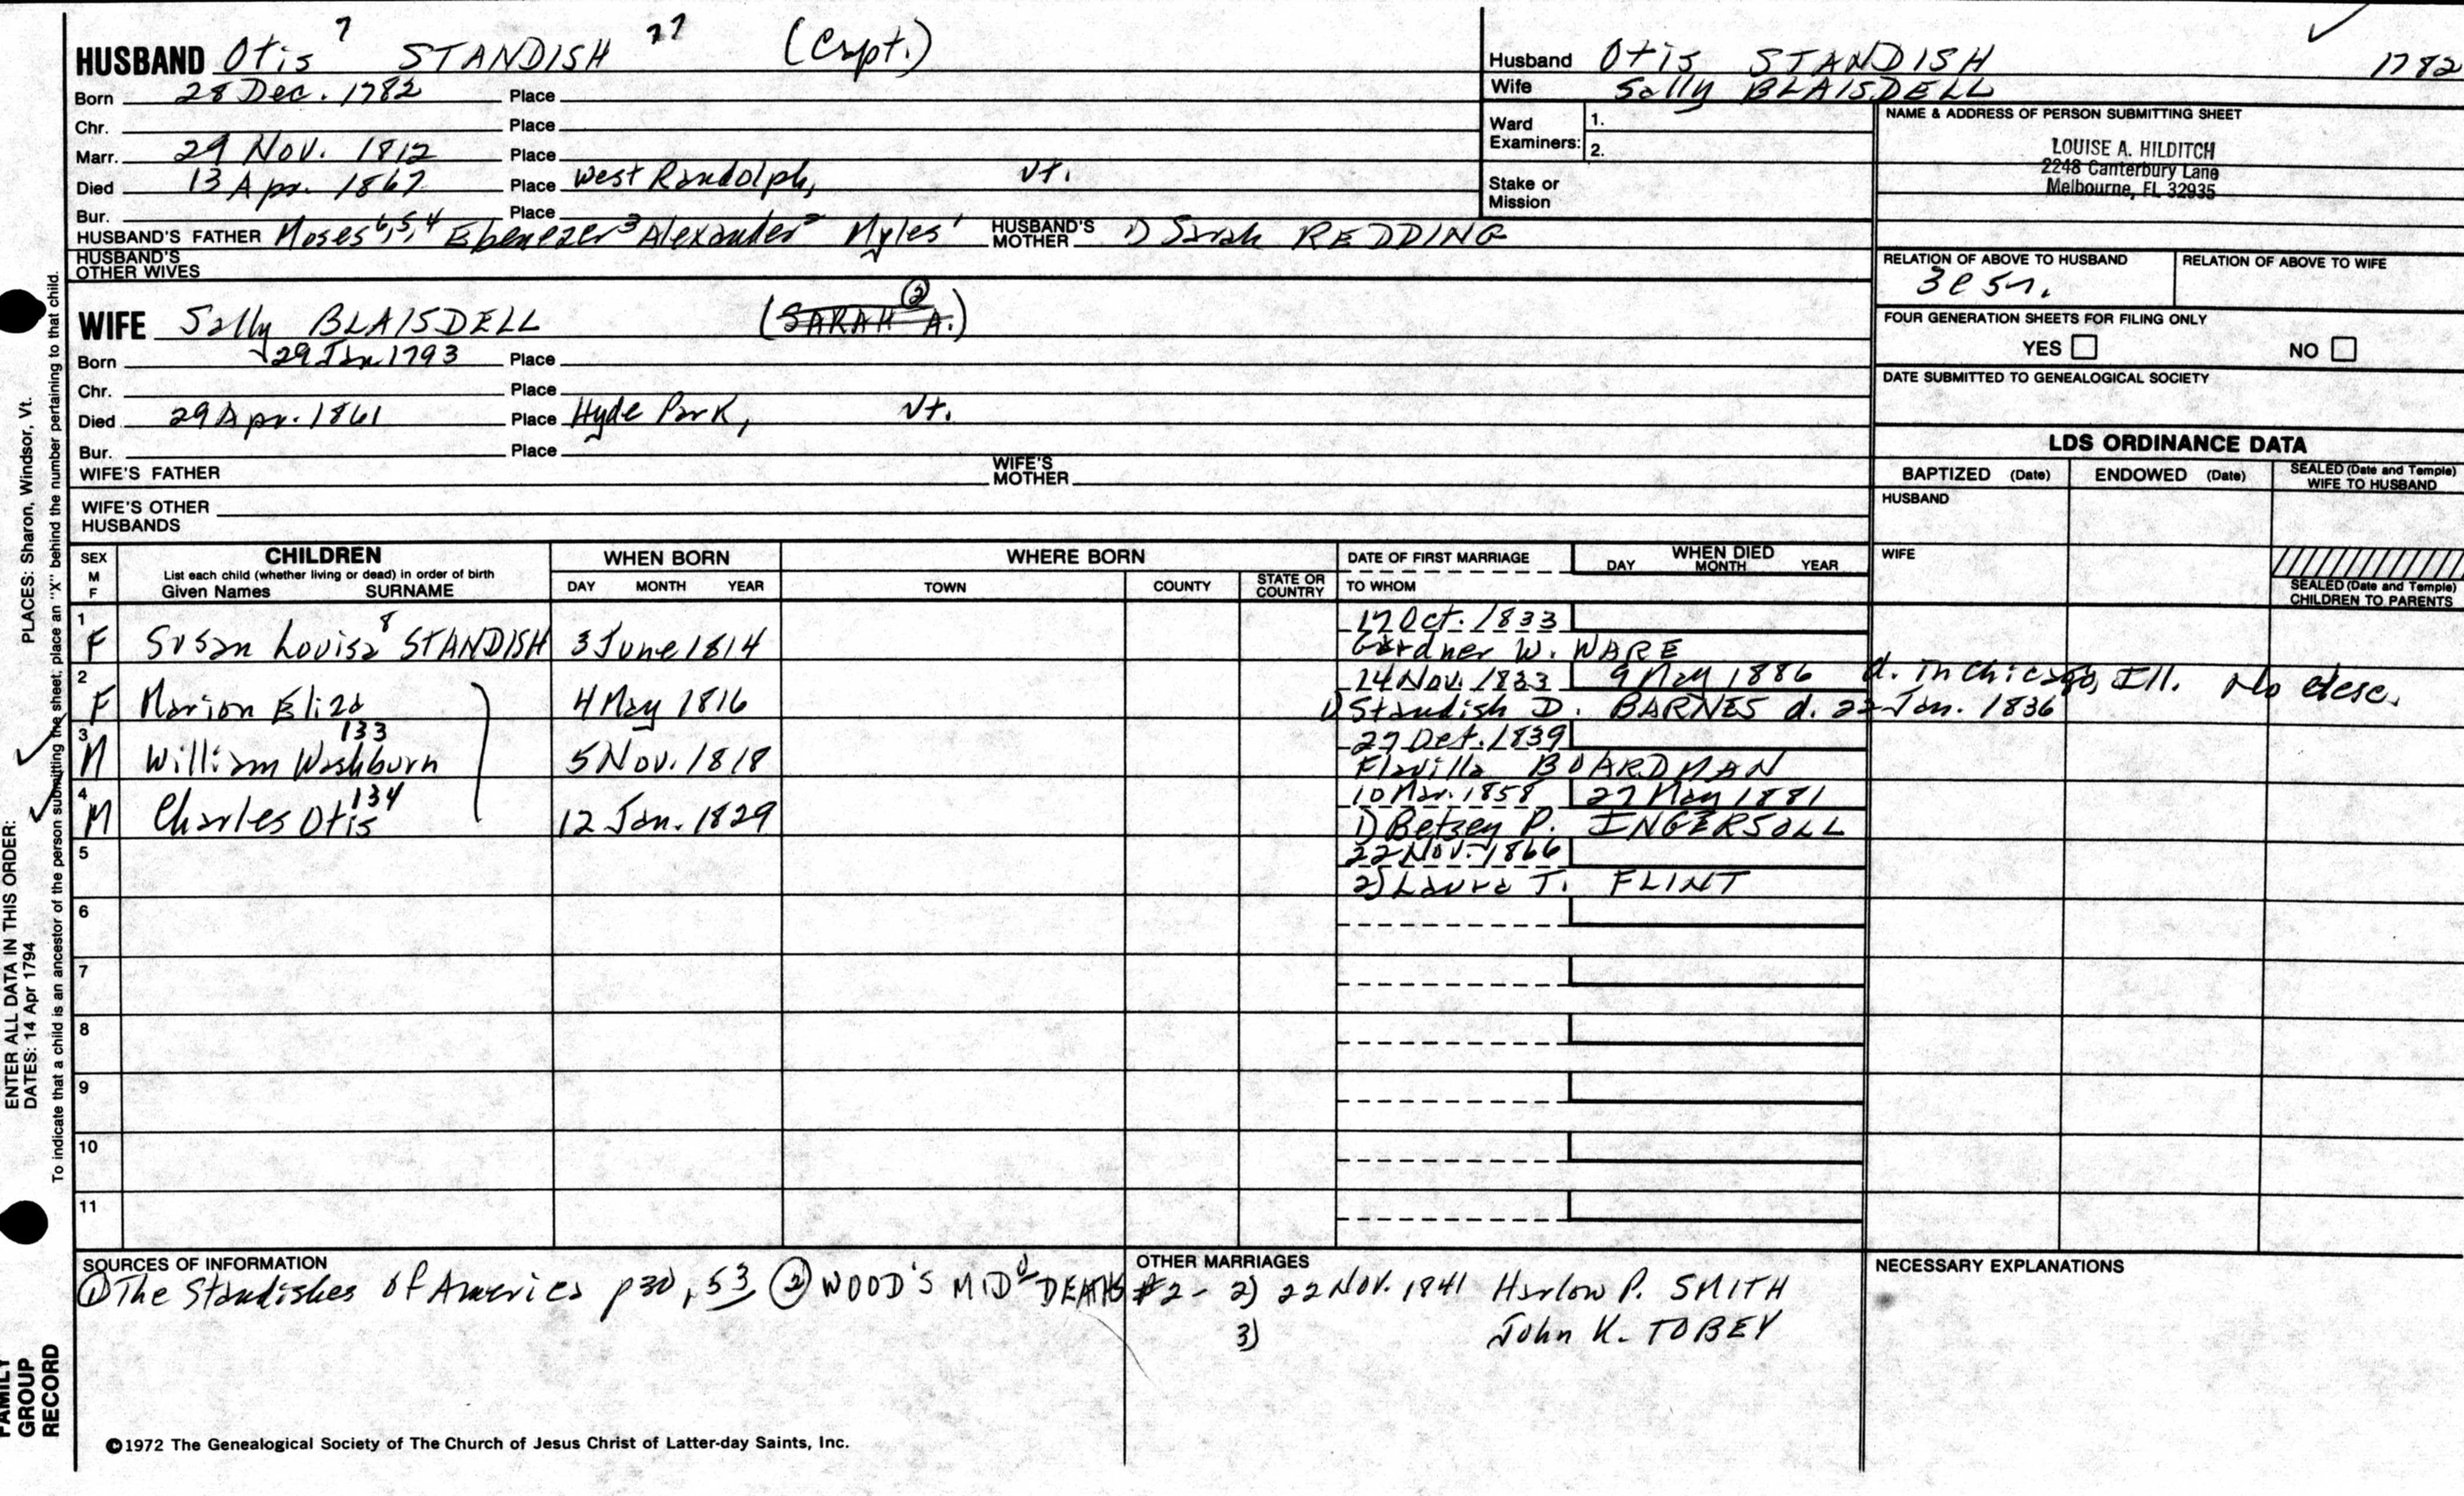 HUSBAND Otis 7 STANDISH 77 (Capt.)
Born 28 Dec. 1782 Place
Chr. Place
Marr. 29 Nov. 1812 Place
Died 13 Apr. 1867 Place West Randolph, Vt.
Bur. Place
HUSBAND'S FATHER Moses 6,5,4 Ebenezer 3 Alexander 2 Myles 1 HUSBAND'S MOTHER 1) Sarah REDDING
HUSBAND'S OTHER WIVES
WIFE Sally BLAISDELL (SARAH A.) ②
Born 29 Jan 1793 Place
Chr. Place
Died 29 Apr. 1861 Place Hyde Park, Vt.
Bur. Place
WIFE'S FATHER WIFE'S MOTHER
WIFE'S OTHER HUSBANDS
Husband Otis STANDISH 1782
Wife Sally BLAISDELL
Ward Examiners: 1.
2.
Stake or Mission
NAME & ADDRESS OF PERSON SUBMITTING SHEET
LOUISE A. HILDITCH
2248 Canterbury Lane
Melbourne, FL 32935
RELATION OF ABOVE TO HUSBAND RELATION OF ABOVE TO WIFE
FOUR GENERATION SHEETS FOR FILING ONLY
YES NO
DATE SUBMITTED TO GENEALOGICAL SOCIETY
LDS ORDINANCE DATA
BAPTIZED (Date) ENDOWED (Date) SEALED (Date and Temple) WIFE TO HUSBAND
HUSBAND
WIFE
SEALED (Date and Temple) CHILDREN TO PARENTS
SEX M F
CHILDREN
List each child (whether living or dead) in order of birth
Given Names SURNAME
WHEN BORN
DAY MONTH YEAR
WHERE BORN
TOWN COUNTY STATE OR COUNTRY
DATE OF FIRST MARRIAGE
TO WHOM
WHEN DIED
DAY MONTH YEAR
1 F Susan Louisa 8 STANDISH 3 June 1814 17 Oct. 1833
Gardner W. WARE
2 F Marion Eliza 4 May 1816 14 Nov. 1833 9 May 1886 d. in Chicago, Ill. No desc.
1) Standish D. BARNES d. 22 Jan. 1836
3 M William Washburn 133 5 Nov. 1818 27 Oct. 1839
Flavilla BOARDMAN
4 M Charles Otis 134 12 Jan. 1829 10 Mar. 1858 27 May 1881
1) Betsey P. INGERSOLL
5 22 Nov. 1866
2) Laura T. FLINT
6
7
8
9
10
11
SOURCES OF INFORMATION
① The Standishes of America p30, 53 ② WOOD'S MID'O DEATHS
OTHER MARRIAGES
#2 - 2) 22 Nov. 1841 Harlow P. SMITH
3) John K. TOBEY
NECESSARY EXPLANATIONS
©1972 The Genealogical Society of The Church of Jesus Christ of Latter-day Saints, Inc.
FAMILY GROUP RECORD
ENTER ALL DATA IN THIS ORDER:
DATES: 14 Apr 1794 PLACES: Sharon, Windsor, Vt.
To indicate that a child is an ancestor of the person submitting the sheet, place an "X" behind the number pertaining to that child.